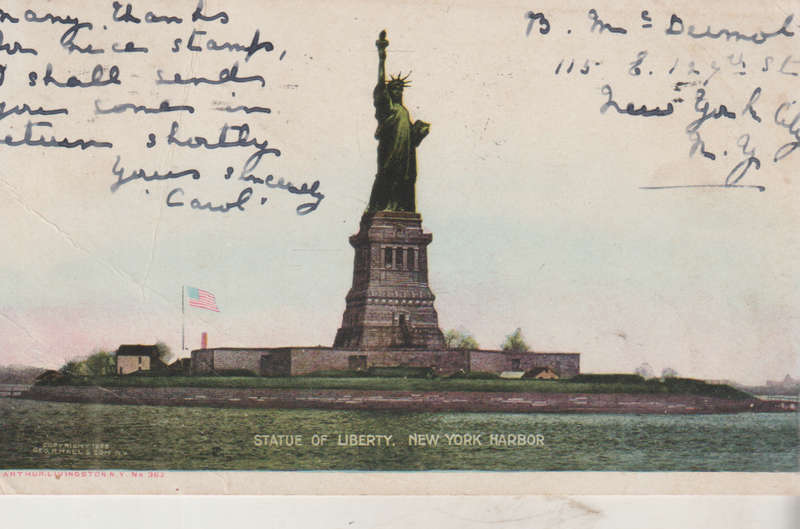 many thanks
for nice stamps,
I shall send
you some in
return shortly
Yours sincerely
"Carol"
B. Mc Dermot
115 E. 127th St
New York City
N. Y.
STATUE OF LIBERTY, NEW YORK HARBOR
COPYRIGHT
GEO. P. HALL & SON N.Y.
ARTHUR LIVINGSTON N.Y. No 362